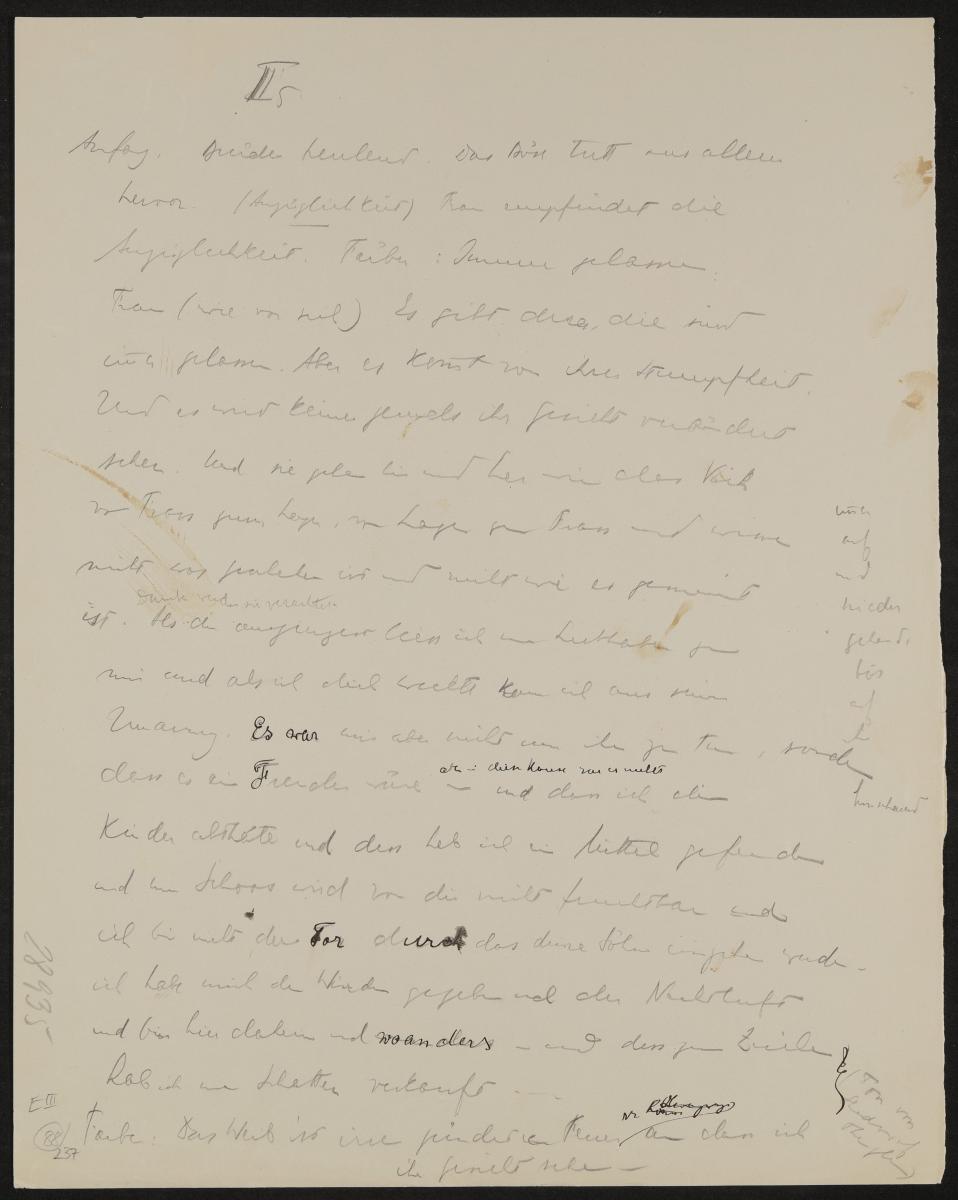 II 5
Anfang. Beide heulend. Das Böse tritt aus allem
hervor. (Anzüglichkeit) Frau empfindet die
Anzüglichkeit. Färber: Immer gelassen.
Frau (wie vor sich) Es gibt derer, die sind
immer gelassen. Aber es kommt von ihrer Stumpfheit.
Und es wird keiner jemals ihr Gesicht verändert
sehen. Und sie gehen hin und her wie das Vieh
von Frass zum Lager, von Lager zum Frass und wissen
nicht was geschehen ist und nicht wie es gemeint
Darum werden sie verachtet
ist. Als du ausgingest liess ich einen Liebhaber zu
mir und als ich dich weckte kam ich aus seiner
Umarmung. Es war mir aber nicht um ihn zu tun, sondern
dass es ein Fremder wäre – und dass ich dein
Kinder abthäte und dess hab ich ein Mittel gefunden
und mein Schooss wird von dir nicht fruchtbar und
ich bin nicht das Tor durch das deine Söhne eingehen werden –
ich habe mich den Winden gegeben und der Nachtluft
und bin hier daheim und woanders – und dess zum Zeichen
hab ich meinen Schatten verkauft ...
Farbe: Das Weib ist irre zündet ein Feuer an dass ich
ihr Gesicht sehe –
immer
auf
und
nieder
gehend,
bös
auf
ihn
hinschauend
28935
E III
88/
237